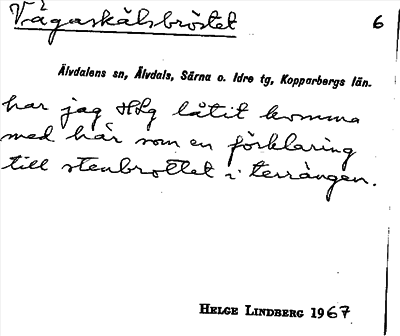 Vågaskålsbröstet 6
Älvdalens sn, Älvdals, Särna o. Idre tg, Kopparbergs län.
har jag HLg låtit komma
med här som en förklaring
till stenbrottet i terrängen.
HELGE LINDBERG 1967